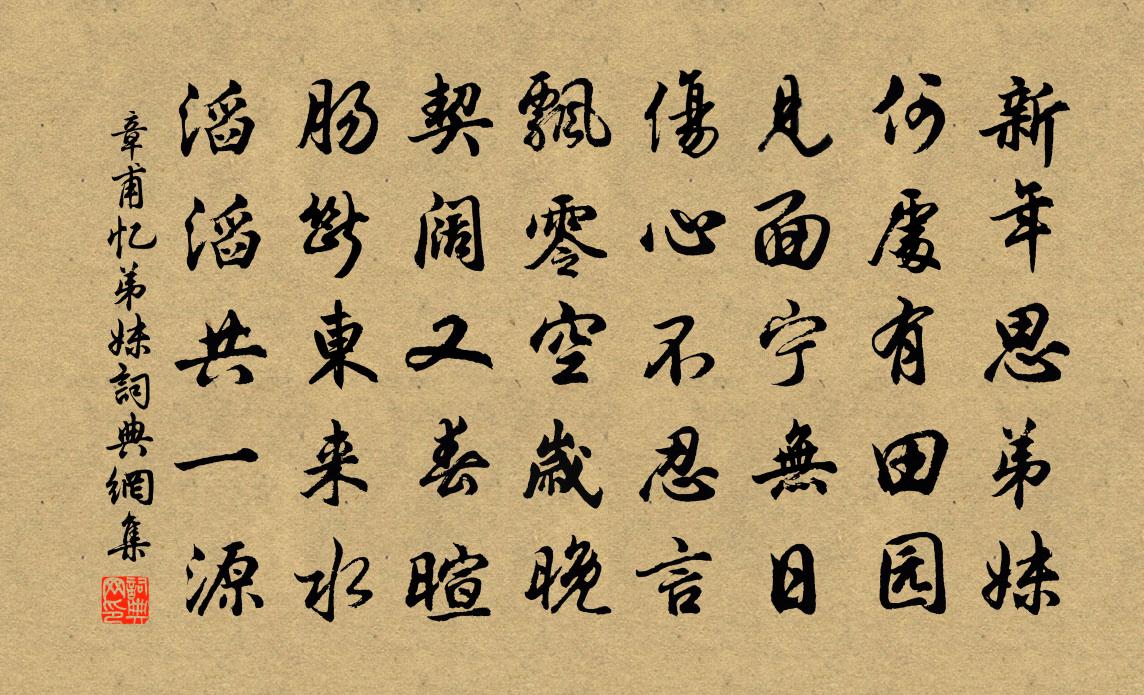 新年思弟妹
何處有田园
見面宁無日
傷心不忍言
飄零空歲晚
契阔又春暄
肠斷東来水
滔滔共一源
章甫忆弟妹詞典網集
詞典网印